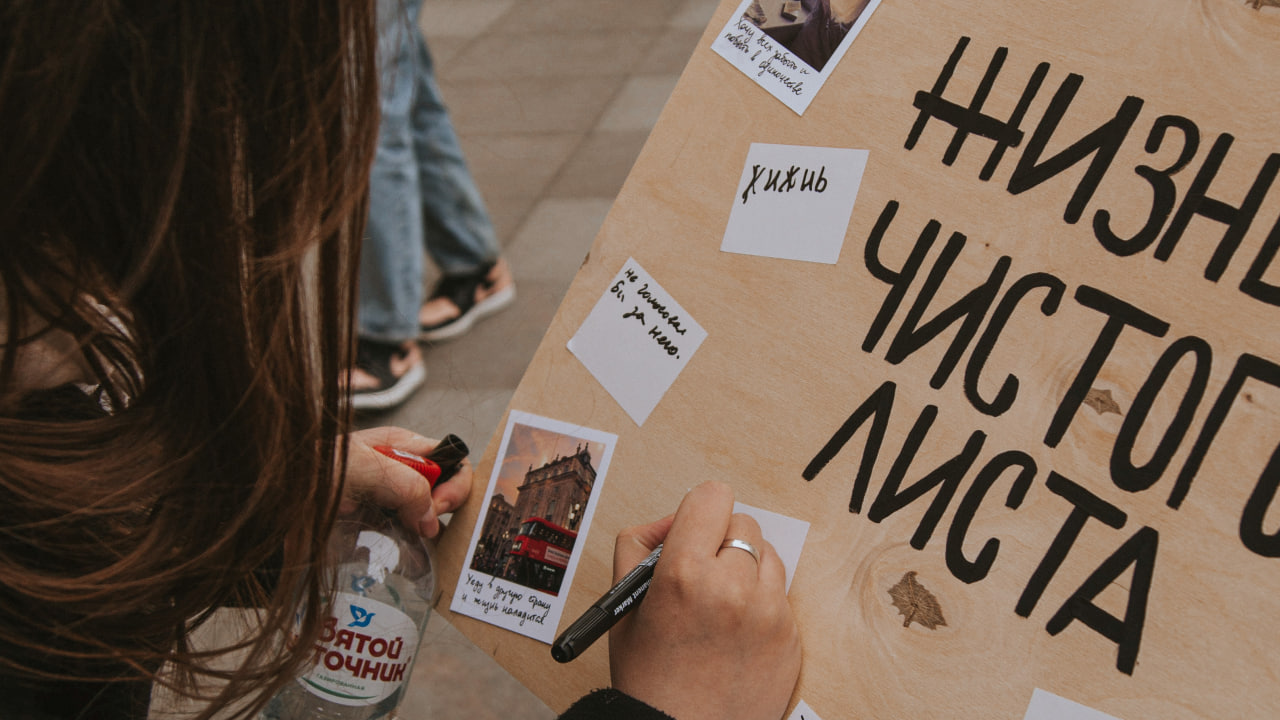 Хочу всех работ и
побыть в одиночестве
жижнь
не голосовал
бы за него.
Уеду в другую страну
и жизнь наладится
ЖИЗНЬ
ЧИСТОГО
ЛИСТА
СВЯТОЙ
ИСТОЧНИК
ГАЗИРОВАННАЯ
Permanent Marker